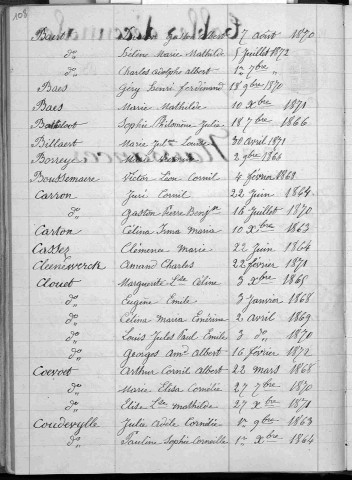 108
Baert Albert 7 Août 1870
do Hélène Marie Mathilde 5 Juillet 1872
do Charles Adolphe Albert 1er 7bre "
Baes Géry Henri Ferdinand 18 9bre 1870
Baes Marie Mathilde 10 Xbre 1871
Sophie Philomène Julie 18 7bre 1866
Billaert Marie Jul. Louise 30 Avril 1871
Borrey 2 9bre 1864
Bouttemaire Victor Léon Cornil 4 février 1869
Carron Juri Cornil 22 Juin 1864
do Gaston Pierre 16 Juillet 1870
Carton Célina Irma Maria 10 Xbre 1863
Clémence Marie 22 Juin 1864
Cleenewerck Amand Charles 22 février 1871
Clouet Marguerite Lse Céline 3 Xbre 1865
do Eugène Emile 3 Janvier 1868
do Célina Maria 2 avril 1869
do Louis Jules Paul Emile 3 do 1870
do Georges Amd Albert 16 février 1872
Coevoet Arthur Cornil Albert 22 mars 1868
do Marie Elisa Cornélie 27 7bre 1870
do Elise Lse Mathilde 27 Xbre 1871
Coudeville Julie Adèle Cornélie 1er 9bre 1863
do Pauline Sophie Corneille 1er Xbre 1864